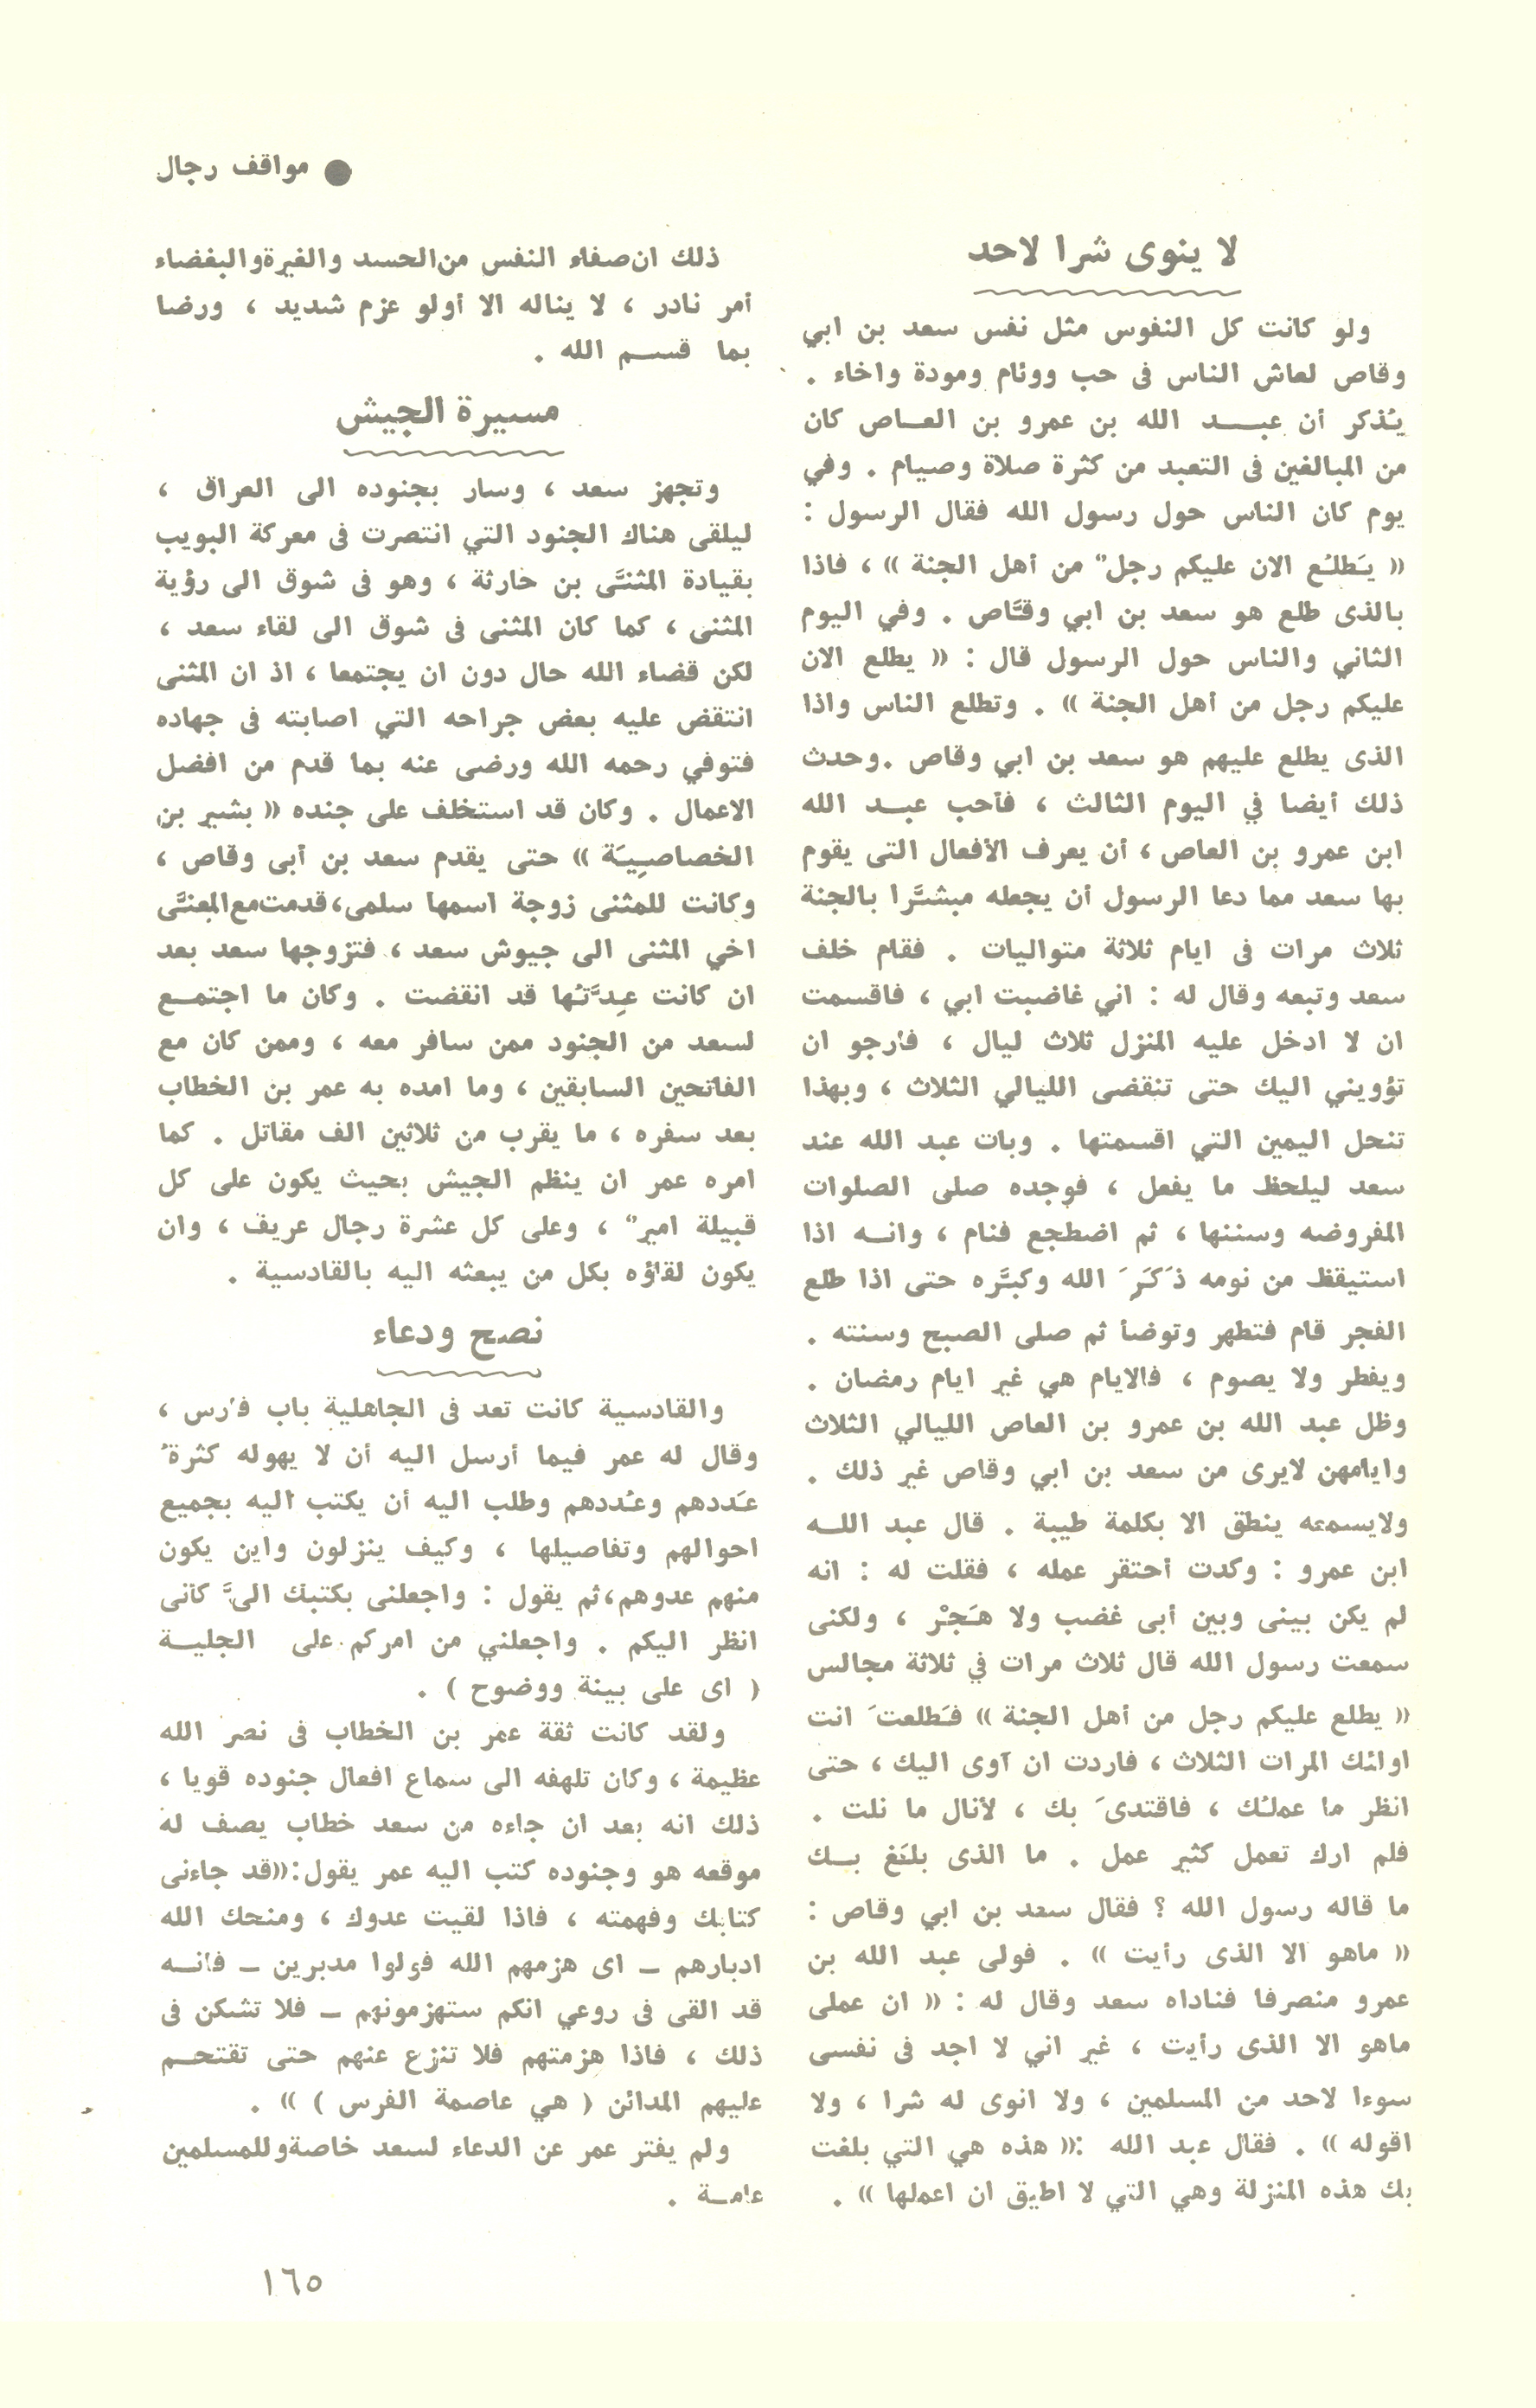 ● مواقف رجال
لا ينوى شرا لاحد
ولو كانت كل النفوس مثل نفس سعد بن ابي
وقاص لعاش الناس فى حب ووئام ومودة واخاء .
يُذكر أن عبد الله بن عمرو بن العاص كان
من المبالغين فى التعبد من كثرة صلاة وصيام . وفي
يوم كان الناس حول رسول الله فقال الرسول :
« يَطلُع الان عليكم رجلٌ من أهل الجنة » ، فاذا
بالذى طلع هو سعد بن ابي وقَّاص . وفي اليوم
الثاني والناس حول الرسول قال : « يطلع الان
عليكم رجل من أهل الجنة » . وتطلع الناس واذا
الذى يطلع عليهم هو سعد بن ابي وقاص .وحدث
ذلك أيضا في اليوم الثالث ، فأحب عبد الله
ابن عمرو بن العاص ، أن يعرف الأفعال التى يقوم
بها سعد مما دعا الرسول أن يجعله مبشَّرا بالجنة
ثلاث مرات فى ايام ثلاثة متواليات . فقام خلف
سعد وتبعه وقال له : اني غاضبت ابي ، فاقسمت
ان لا ادخل عليه المنزل ثلاث ليال ، فأرجو ان
تؤويني اليك حتى تنقضى الليالي الثلاث ، وبهذا
تنحل اليمين التي اقسمتها . وبات عبد الله عند
سعد ليلحظ ما يفعل ، فوجده صلى الصلوات
المفروضه وسننها ، ثم اضطجع فنام ، وانه اذا
استيقظ من نومه ذَكَرَ الله وكبَّره حتى اذا طلع
الفجر قام فتطهر وتوضأ ثم صلى الصبح وسنته .
ويفطر ولا يصوم ، فالايام هي غير ايام رمضان .
وظل عبد الله بن عمرو بن العاص الليالي الثلاث
وايامهن لايرى من سعد بن ابي وقاص غير ذلك .
ولايسمعه ينطق الا بكلمة طيبة . قال عبد الله
ابن عمرو : وكدت أحتقر عمله ، فقلت له : انه
لم يكن بينى وبين أبى غضب ولا هَجْر ، ولكنى
سمعت رسول الله قال ثلاث مرات في ثلاثة مجالس
« يطلع عليكم رجل من أهل الجنة » فَطلعتَ انت
اولئك المرات الثلاث ، فاردت ان آوى اليك ، حتى
انظر ما عملُك ، فاقتدىَ بك ، لأنال ما نلت .
فلم ارك تعمل كثير عمل . ما الذى بلَغ بك
ما قاله رسول الله ؟ فقال سعد بن ابي وقاص :
« ماهو الا الذى رأيت » . فولى عبد الله بن
عمرو منصرفا فناداه سعد وقال له : « ان عملى
ماهو الا الذى رأيت ، غير اني لا اجد فى نفسى
سوءا لاحد من المسلمين ، ولا انوى له شرا ، ولا
اقوله » . فقال عبد الله :« هذه هي التي بلغت
بك هذه المنزلة وهي التي لا اطيق ان اعملها » .
ذلك ان صفاء النفس من الحسد والغيرة والبغضاء
أمر نادر ، لا يناله الا أولو عزم شديد ، ورضا
بما قسم الله .
مسيرة الجيش
وتجهز سعد ، وسار بجنوده الى العراق ،
ليلقى هناك الجنود التي انتصرت فى معركة البويب
بقيادة المثنَّى بن حارثة ، وهو فى شوق الى رؤية
المثنى ، كما كان المثنى فى شوق الى لقاء سعد ،
لكن قضاء الله حال دون ان يجتمعا ، اذ ان المثنى
انتقض عليه بعض جراحه التي اصابته فى جهاده
فتوفي رحمه الله ورضى عنه بما قدم من افضل
الاعمال . وكان قد استخلف على جنده « بشير بن
الخصاصِيَة » حتى يقدم سعد بن أبى وقاص ،
وكانت للمثنى زوجة اسمها سلمى، قدمت مع المعنَّى
اخي المثنى الى جيوش سعد ، فتزوجها سعد بعد
ان كانت عِدَّتُها قد انقضت . وكان ما اجتمع
لسعد من الجنود ممن سافر معه ، وممن كان مع
الفاتحين السابقين ، وما امده به عمر بن الخطاب
بعد سفره ، ما يقرب من ثلاثين الف مقاتل . كما
امره عمر ان ينظم الجيش بحيث يكون على كل
قبيلة اميرٌ ، وعلى كل عشرة رجال عريف ، وان
يكون لقاؤه بكل من يبعثه اليه بالقادسية .
نصح ودعاء
والقادسية كانت تعد فى الجاهلية باب فارس ،
وقال له عمر فيما أرسل اليه أن لا يهوله كثرةُ
عَددهم وعُددهم وطلب اليه أن يكتب اليه بجميع
احوالهم وتفاصيلها ، وكيف ينزلون واين يكون
منهم عدوهم، ثم يقول : واجعلنى بكتبك الىَّ كأنى
انظر اليكم . واجعلني من امركم على الجلية
( اى على بينة ووضوح ) .
ولقد كانت ثقة عمر بن الخطاب فى نصر الله
عظيمة ، وكان تلهفه الى سماع افعال جنوده قويا ،
ذلك انه بعد ان جاءه من سعد خطاب يصف له
موقعه هو وجنوده كتب اليه عمر يقول:«قد جاءنى
كتابك وفهمته ، فاذا لقيت عدوك ، ومنحك الله
ادبارهم – اى هزمهم الله فولوا مدبرين – فانه
قد القى فى روعي انكم ستهزمونهم – فلا تشكن فى
ذلك ، فاذا هزمتهم فلا تنزع عنهم حتى تقتحم
عليهم المدائن ( هي عاصمة الفرس ) » .
ولم يفتر عمر عن الدعاء لسعد خاصة وللمسلمين
عامة .
١٦٥